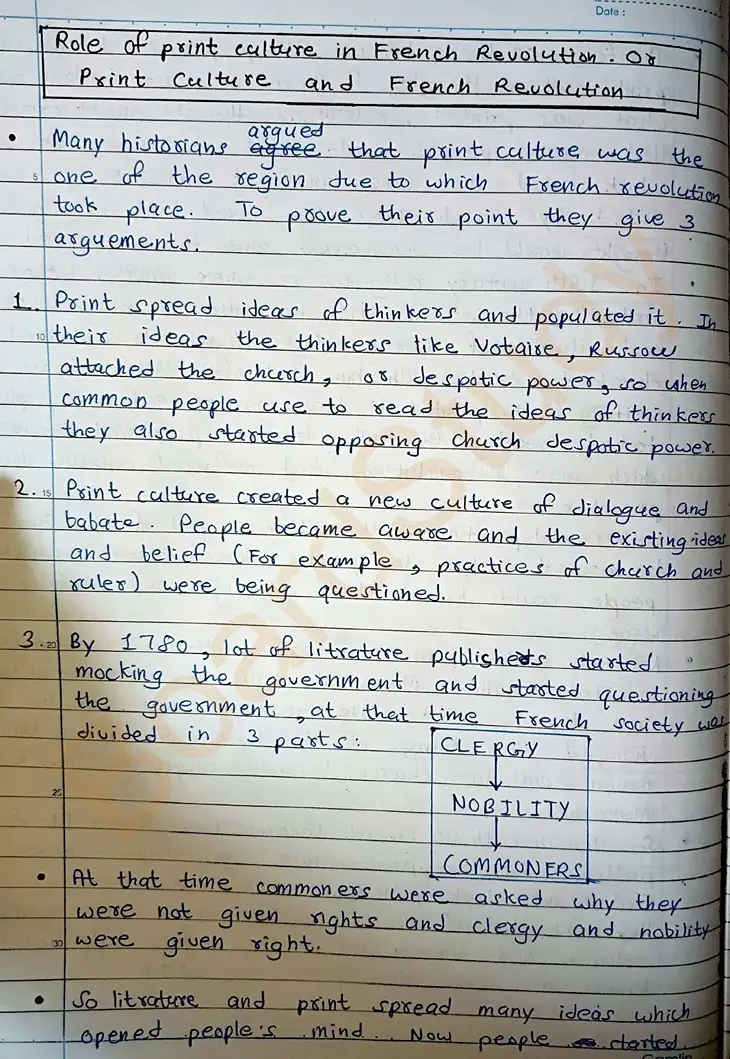 Date :
Role of print culture in French Revolution. Or
Print Culture and French Revolution
argued
• Many historians agree that print culture was the
5 one of the region due to which French revolution
took place. To prove their point they give 3
arguements.
1. Print spread ideas of thinkers and populated it. In
10 their ideas the thinkers like Votaire, Russow
attached the church, or despotic power, so when
common people use to read the ideas of thinkers
they also started opposing Church despotic power.
2. 15 Print culture created a new culture of dialogue and
babate. People became aware and the existing ideas
and belief (For example, practices of church and
ruler) were being questioned.
3. 20 By 1780, lot of litrature publishers started
mocking the government and started questioning
the government, at that time French society was
divided in 3 parts:
CLERGY
25 NOBILITY
COMMONERS
• At that time commoners were asked why they
were not given rights and clergy and nobility
30 were given right.
• So litrature and print spread many ideas which
opened people's mind. Now people started
Camlin
BoardStudy